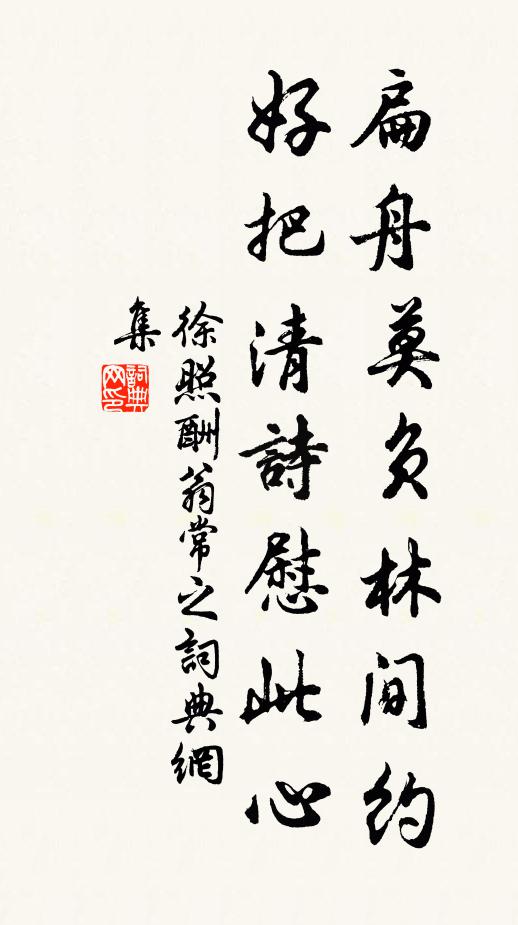 扁舟莫负林间约
好把清詩慰此心
徐照酬翁常之詞典網
集
詞典
网印